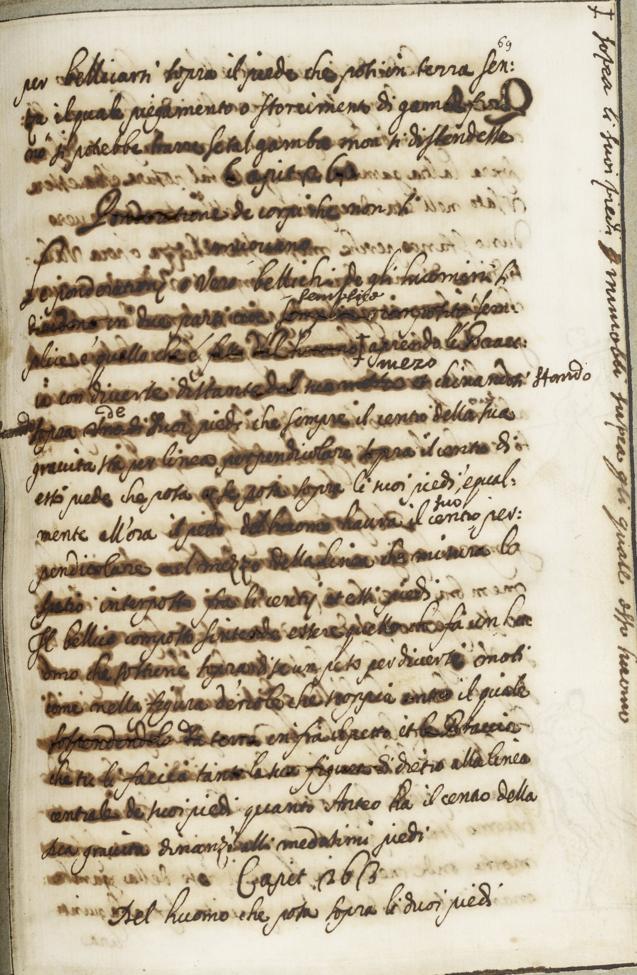 69
per belliciarsi sopra il piede che posi in terra sen:
za il quale piegamento o storcimento di gamba
non si potrebbe trarre se tal gamba non si distendesse
Capit. 262
Ponderatione de corpi che non si
muovano
Le ponderationi o vero bellichi de gli huomini si
dividono in due parti cioè semplice et composto sem:
plice è quello che è fatto dal huomo † aprendo le Bracc:
ia con diverse distantie dal suo mezo et chinandosi stando
sopra uno de duoi piedi che sempre il cento della sua
gravita sta per linea perpendicolare sopra il cento di
esso piede che posa e se posa sopra li suoi piedi equal:
mente all'ora il peso del huomo haurà il suo centro per:
pendicolare nel mezzo della linea che misura lo
spatio interposto fra li centri et essi piedi
Il bellico composto s'intende essere quello che fa un hu
omo che sostiene sopra di se un peso per diversi moti
come nella figura d'ercole che scoppia anteo il quale
sospendendolo da terra infra il petto et le braccia
che tu li faccia tanto la sua figura di dietro alla linea
centrale de suoi piedi quanto Anteo ha il cento della
sua gravita dinanzi alli medesimi piedi
Capit. 263
Del huomo che posa sopra li duoi piedi
† sopra li suoi piedi immobili supra gli quale esso huomo